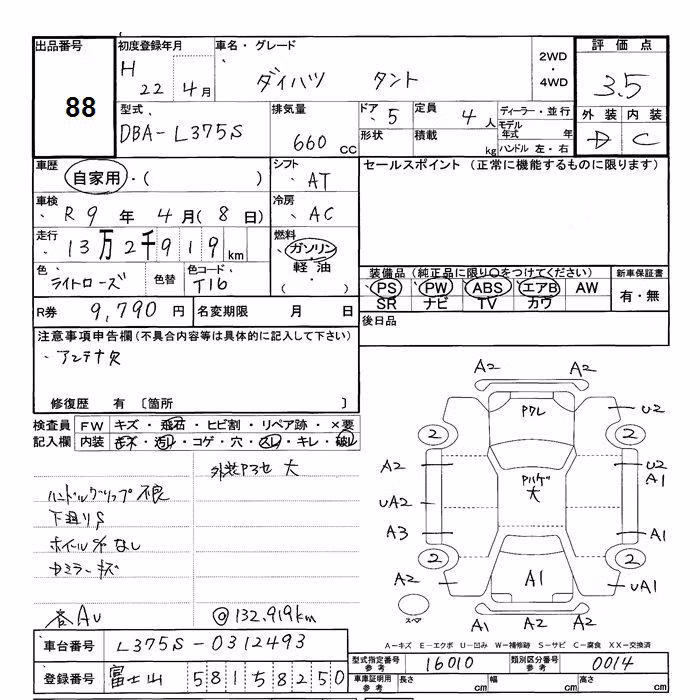 出品番号
88
初度登録年月
H 22 年 4 月
車名・グレード
ダイハツ タント
2WD
・
4WD
評価点
3.5
外装 内装
D C
型式
DBA-L375S
排気量
660 CC
ドア 5
形状
定員 4 人
積載 kg
ディーラー・並行
モデル年式 年
ハンドル 左・右
車歴
自家用・( )
シフト
AT
セールスポイント (正常に機能するものに限ります)
車検
R 9 年 4 月 ( 8 日)
冷房
AC
走行
13万2千919 km
燃料
ガソリン
軽油
( )
色
ライトローズ
色替
色コード
T16
装備品 (純正品に限り○をつけてください)
PS PW ABS エアB AW
SR ナビ TV カワ
新車保証書
有・無
R券 9,790 円
名変期限 月 日
後日品
注意事項申告欄 (不具合内容等は具体的に記入して下さい)
アンテナ欠
修復歴 有 〔箇所 〕
検査員記入欄
FW キズ・飛石・ヒビ割・リペア跡・×要
内装 キズ・汚れ・コゲ・穴・スレ・キレ・破れ
外装Pヤセ 大
ハンドルグリップ不良
下廻りS
ホイールC なし
Fミラーキズ
各AU
◎132,919km
A2 A2
Pクレ
U2
2 2
A2
U2
A1
Pハゲ
大
UA2
A3
A1
2 2
A2
A1
UA1
スペア
A1 A2 A2
A－キズ E－エクボ U－凹み W－補修跡 S－サビ C－腐食 XX－交換済
車台番号 L375S-0312493
登録番号 富士山 581 5 8250
型式指定番号 参考 16010
類別区分番号 参考 0014
車庫証明用 参考
長さ cm
幅 cm
高さ cm